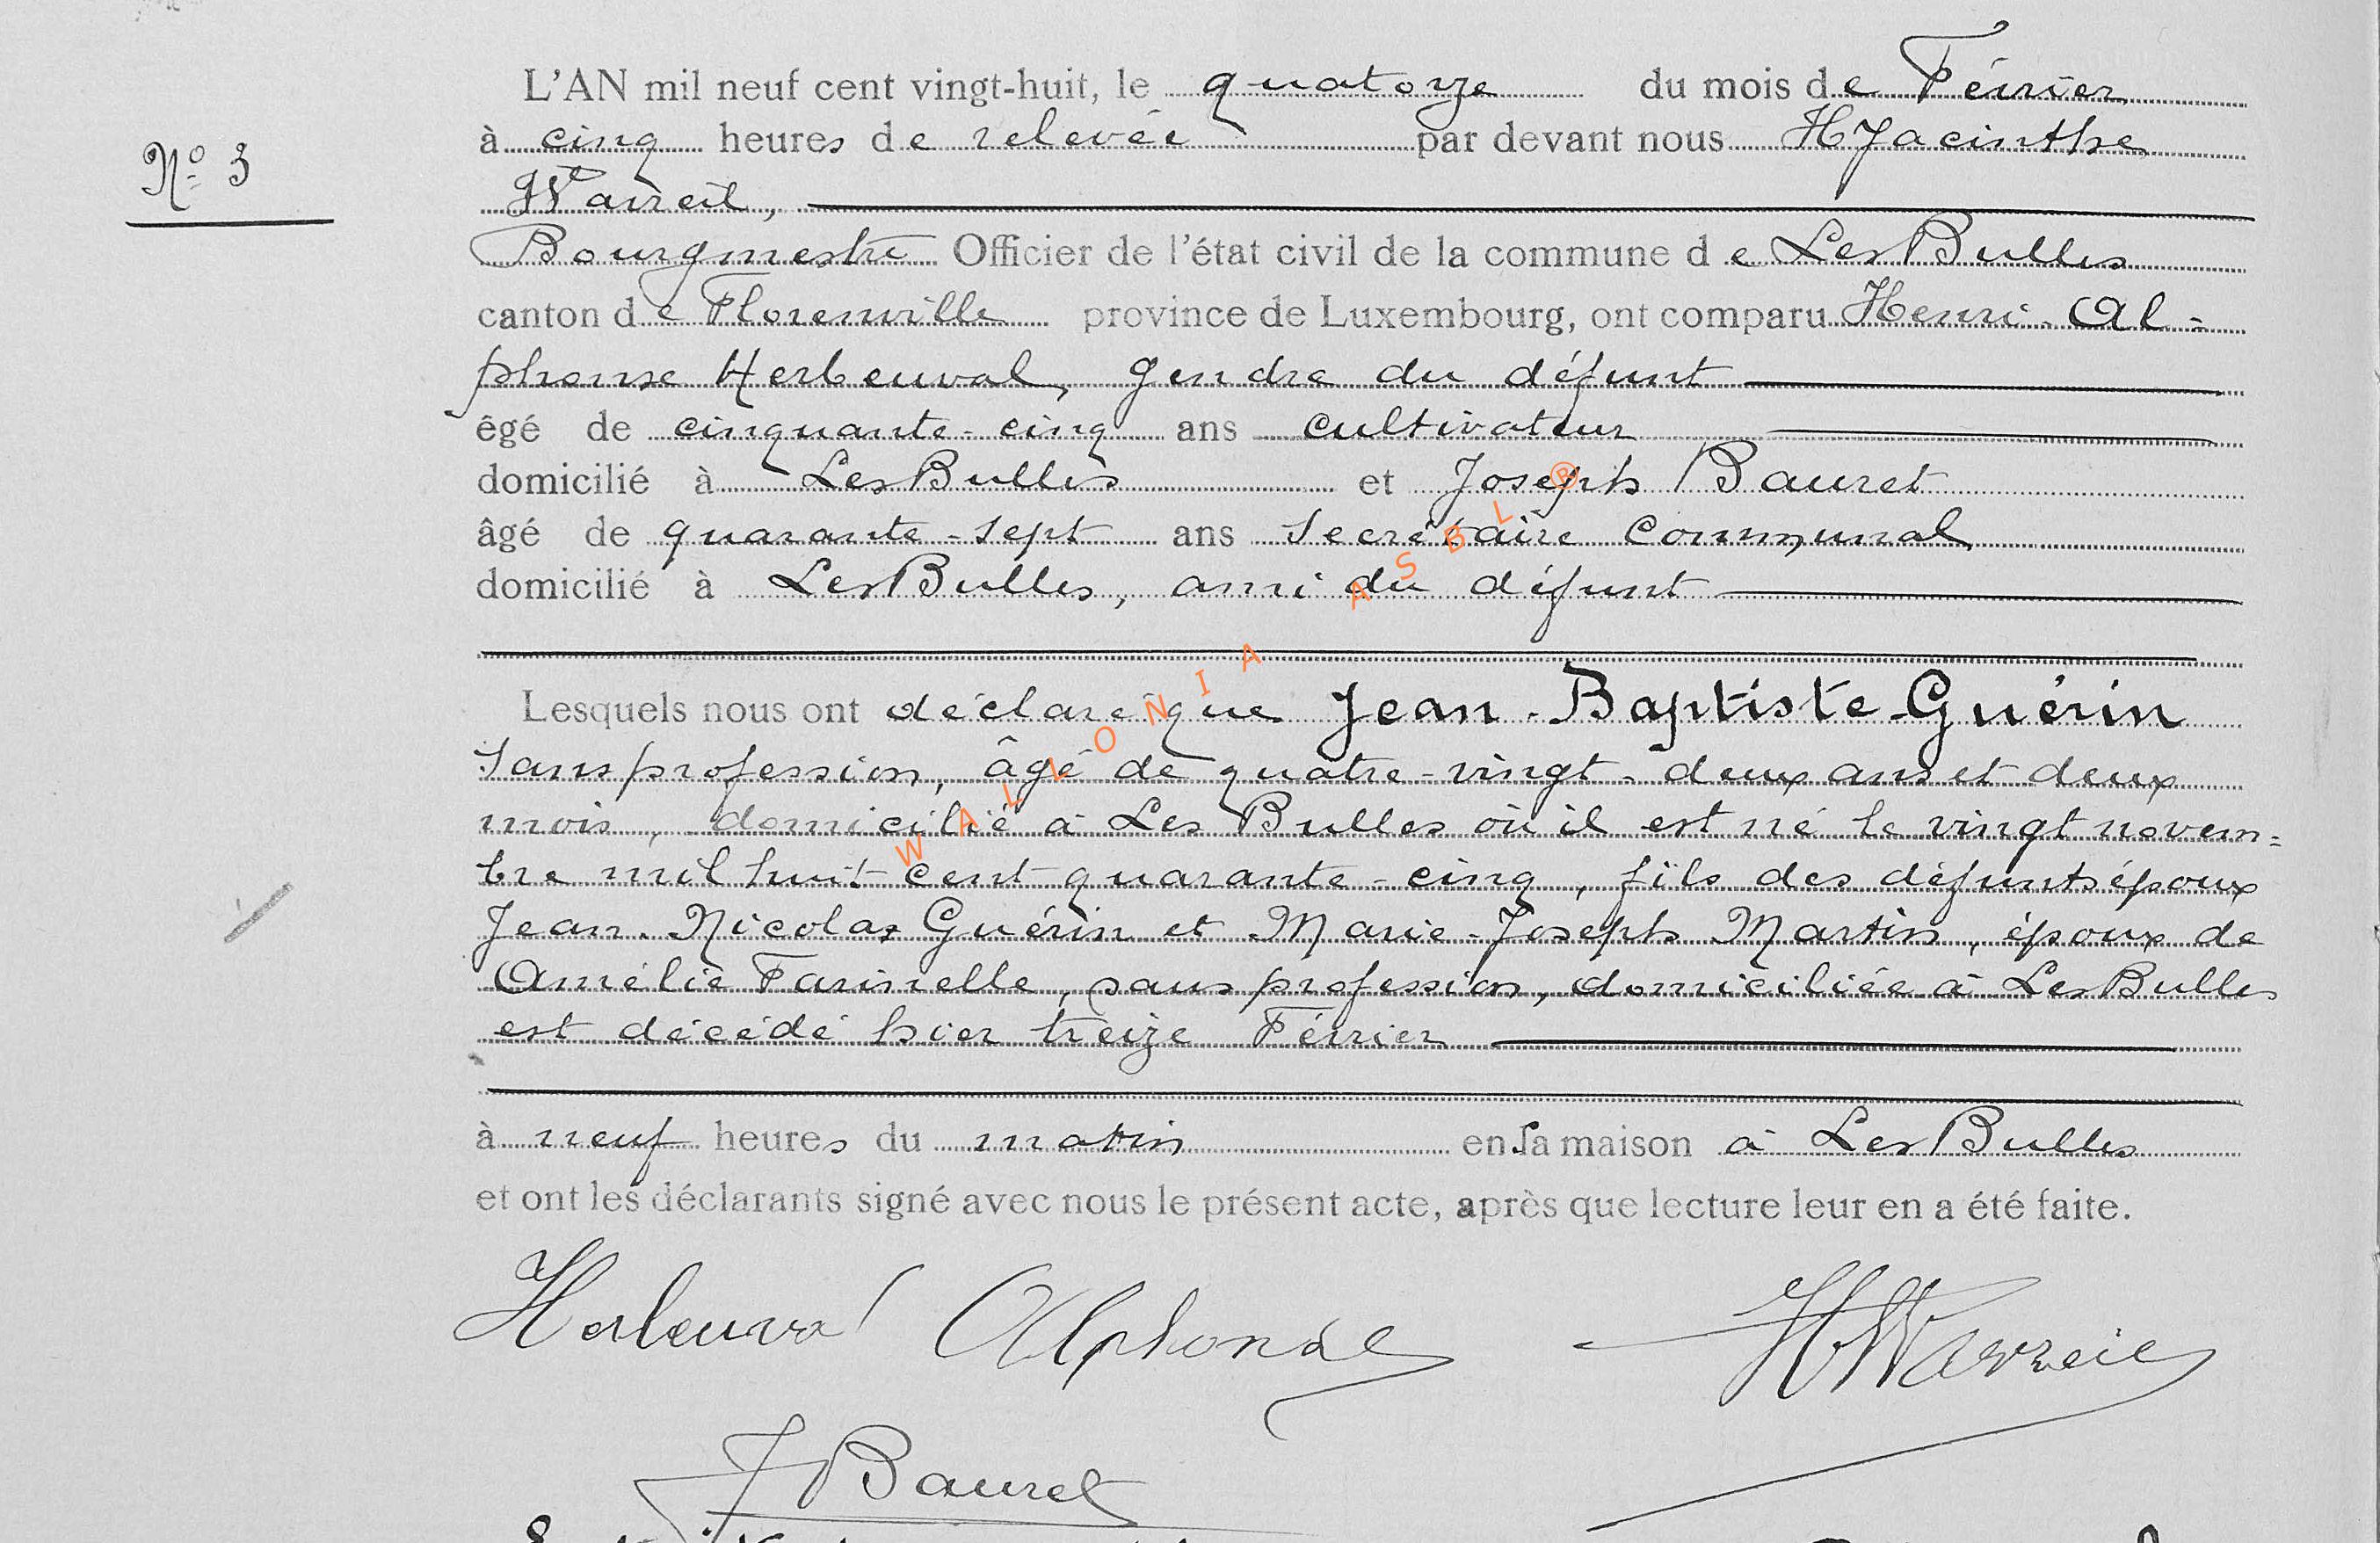 L'AN mil neuf cent vingt-huit, le quatorze du mois de Février
N° 3
à cinq heures de relevée par devant nous Hyacinthe
Bourgmestre Officier de l'état civil de la commune de Les Bulles
canton de Florenville province de Luxembourg, ont comparu Henri-Al-
phonse Herbeuval, gendre du défunt
êgé de cinquante-cinq ans cultivateur
domicilié à Les Bulles et Joseph Bauret
âgé de quarante-sept ans secrétaire communal
domicilié à Les Bulles, ami du défunt
Lesquels nous ont déclaré que Jean-Baptiste Guérin
sans profession, âgé de quatre-vingt-deux ans et deux
mois, domicilié à Les Bulles où il est né le vingt novem=
bre mil huit cent quarante-cinq, fils des défunts époux
Jean-Nicolas Guérin et Marie-Joseph Martin, époux de
Amélie Farinelle, sans profession, domiciliée à Les Bulles
est décédé hier treize Février
à neuf heures du matin en sa maison à Les Bulles
et ont les déclarants signé avec nous le présent acte, après que lecture leur en a été faite.
Herbeuval Alphonse
J Bauret
WALLONIA ASBL ®